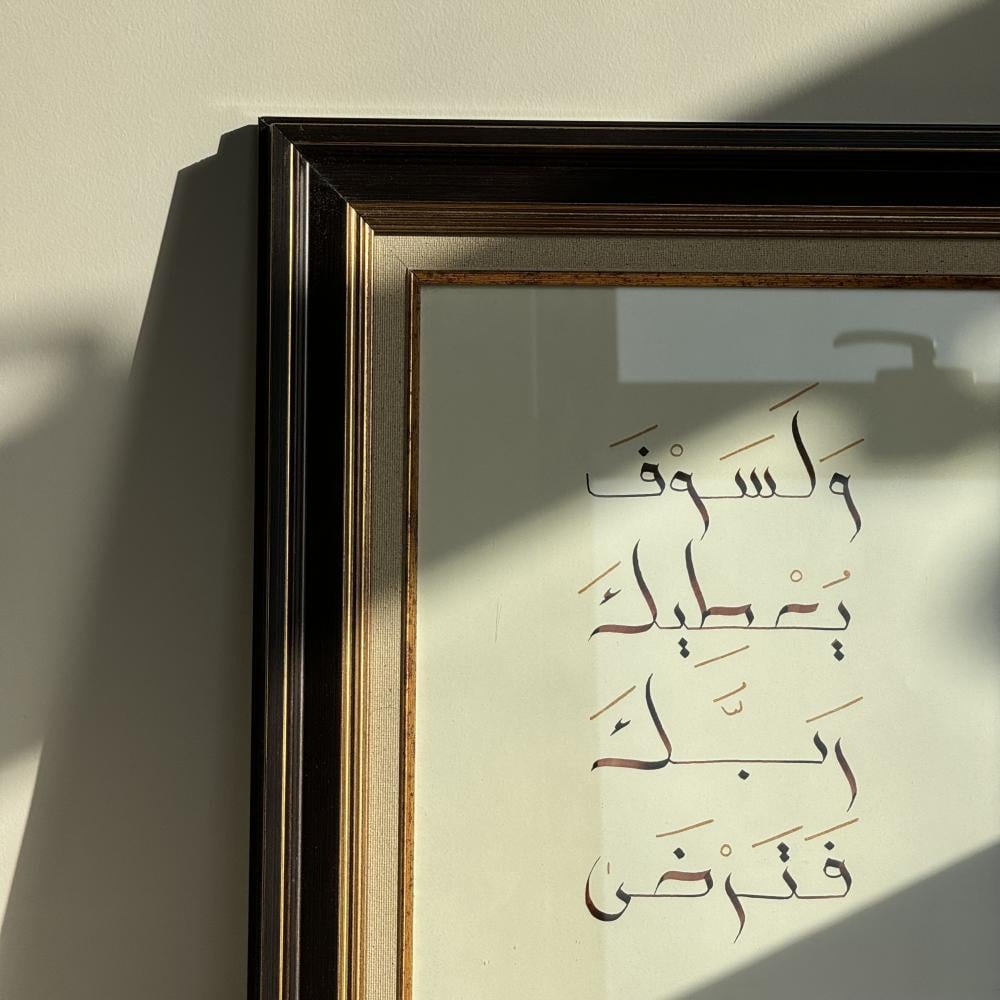 وَلَسَوْفَ
يُعْطِيكَ
رَبُّكَ
فَتَرْضَىٰ